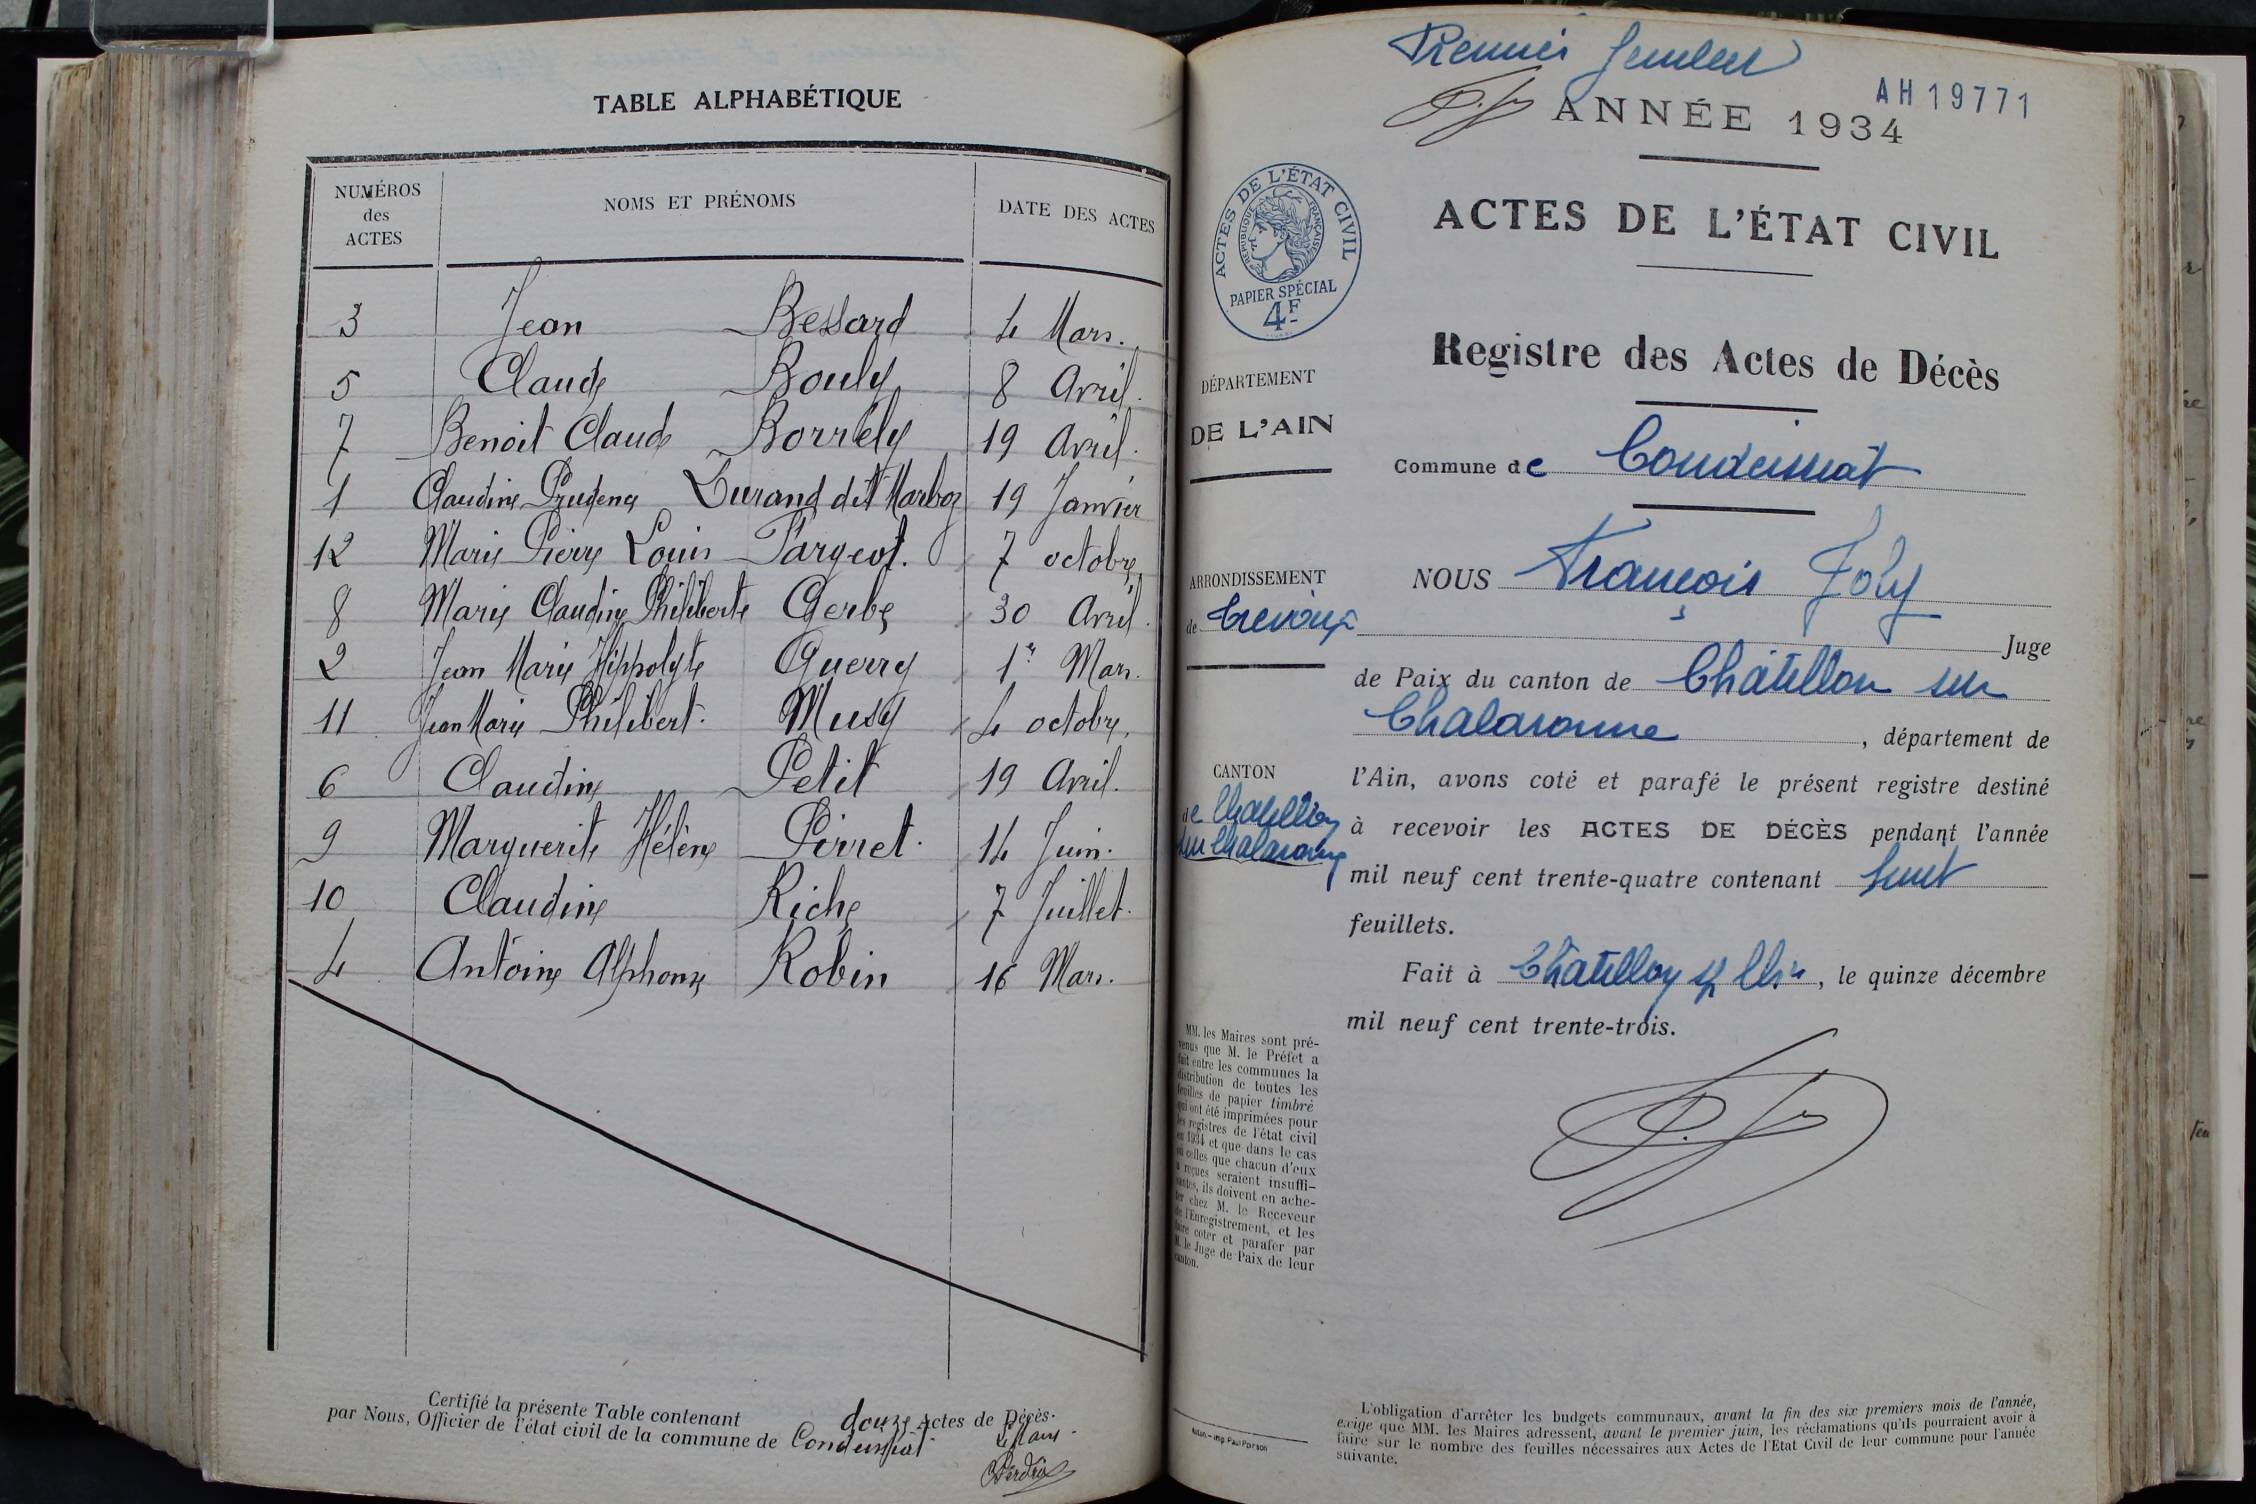 TABLE ALPHABÉTIQUE
NUMÉROS des ACTES NOMS ET PRÉNOMS DATE DES ACTES
3 Jean Bessard 4 Mars.
5 Claude Bouly 8 Avril.
7 Benoit Claude Borrély 19 Avril.
1 Claudine Prudence Durand dit Marboz 19 Janvier
12 Marie Pierre Louis Fargeot. 7 octobre
8 Marie Claudine Philiberte Gerbe 30 Avril.
2 Jean Marie Hippolyte Guerry 1er Mars.
11 Jean Marie Philibert. Musy 4 octobre.
6 Claudine Petit 19 Avril.
9 Marguerite Hélène Pirret. 14 Juin.
10 Claudine Riche 7 Juillet.
4 Antoine Alphonse Robin 16 Mars.
Certifié la présente Table contenant douze Actes de Décès.
par Nous, Officier de l'état civil de la commune de Condeissiat.
Le Maire.
Premier feuillet
AH19771
ANNÉE 1934
ACTES DE L'ÉTAT CIVIL
RÉPUBLIQUE FRANÇAISE
PAPIER SPÉCIAL
4F
ACTES DE L'ÉTAT CIVIL
Registre des Actes de Décès
DÉPARTEMENT
DE L'AIN
Commune de Condeissiat
ARRONDISSEMENT
de Trévoux
NOUS François Joly
Juge
de Paix du canton de Châtillon sur
Chalaronne, département de
CANTON
de Châtillon
sur Chalaronne
l'Ain, avons coté et parafé le présent registre destiné
à recevoir les ACTES DE DÉCÈS pendant l'année
mil neuf cent trente-quatre contenant huit
feuillets.
Fait à Châtillon s/ Chne, le quinze décembre
mil neuf cent trente-trois.
MM. les Maires sont pré-
venus que M. le Préfet a
fait entre les communes la
distribution de toutes les
feuilles de papier timbré
qui ont été imprimées pour
les registres de l'état civil
en 1934 et que dans le cas
où celles que chacun d'eux
a reçues seraient insuffi-
santes, ils doivent en ache-
ter chez M. le Receveur
de l'Enregistrement, et les
faire coter et parafer par
M. le Juge de Paix de leur
canton.
imp. Paul Ponson
L'obligation d'arrêter les budgets communaux, avant la fin des six premiers mois de l'année,
exige que MM. les Maires adressent, avant le premier juin, les réclamations qu'ils pourraient avoir à
faire sur le nombre des feuilles nécessaires aux Actes de l'Etat Civil de leur commune pour l'année
suivante.